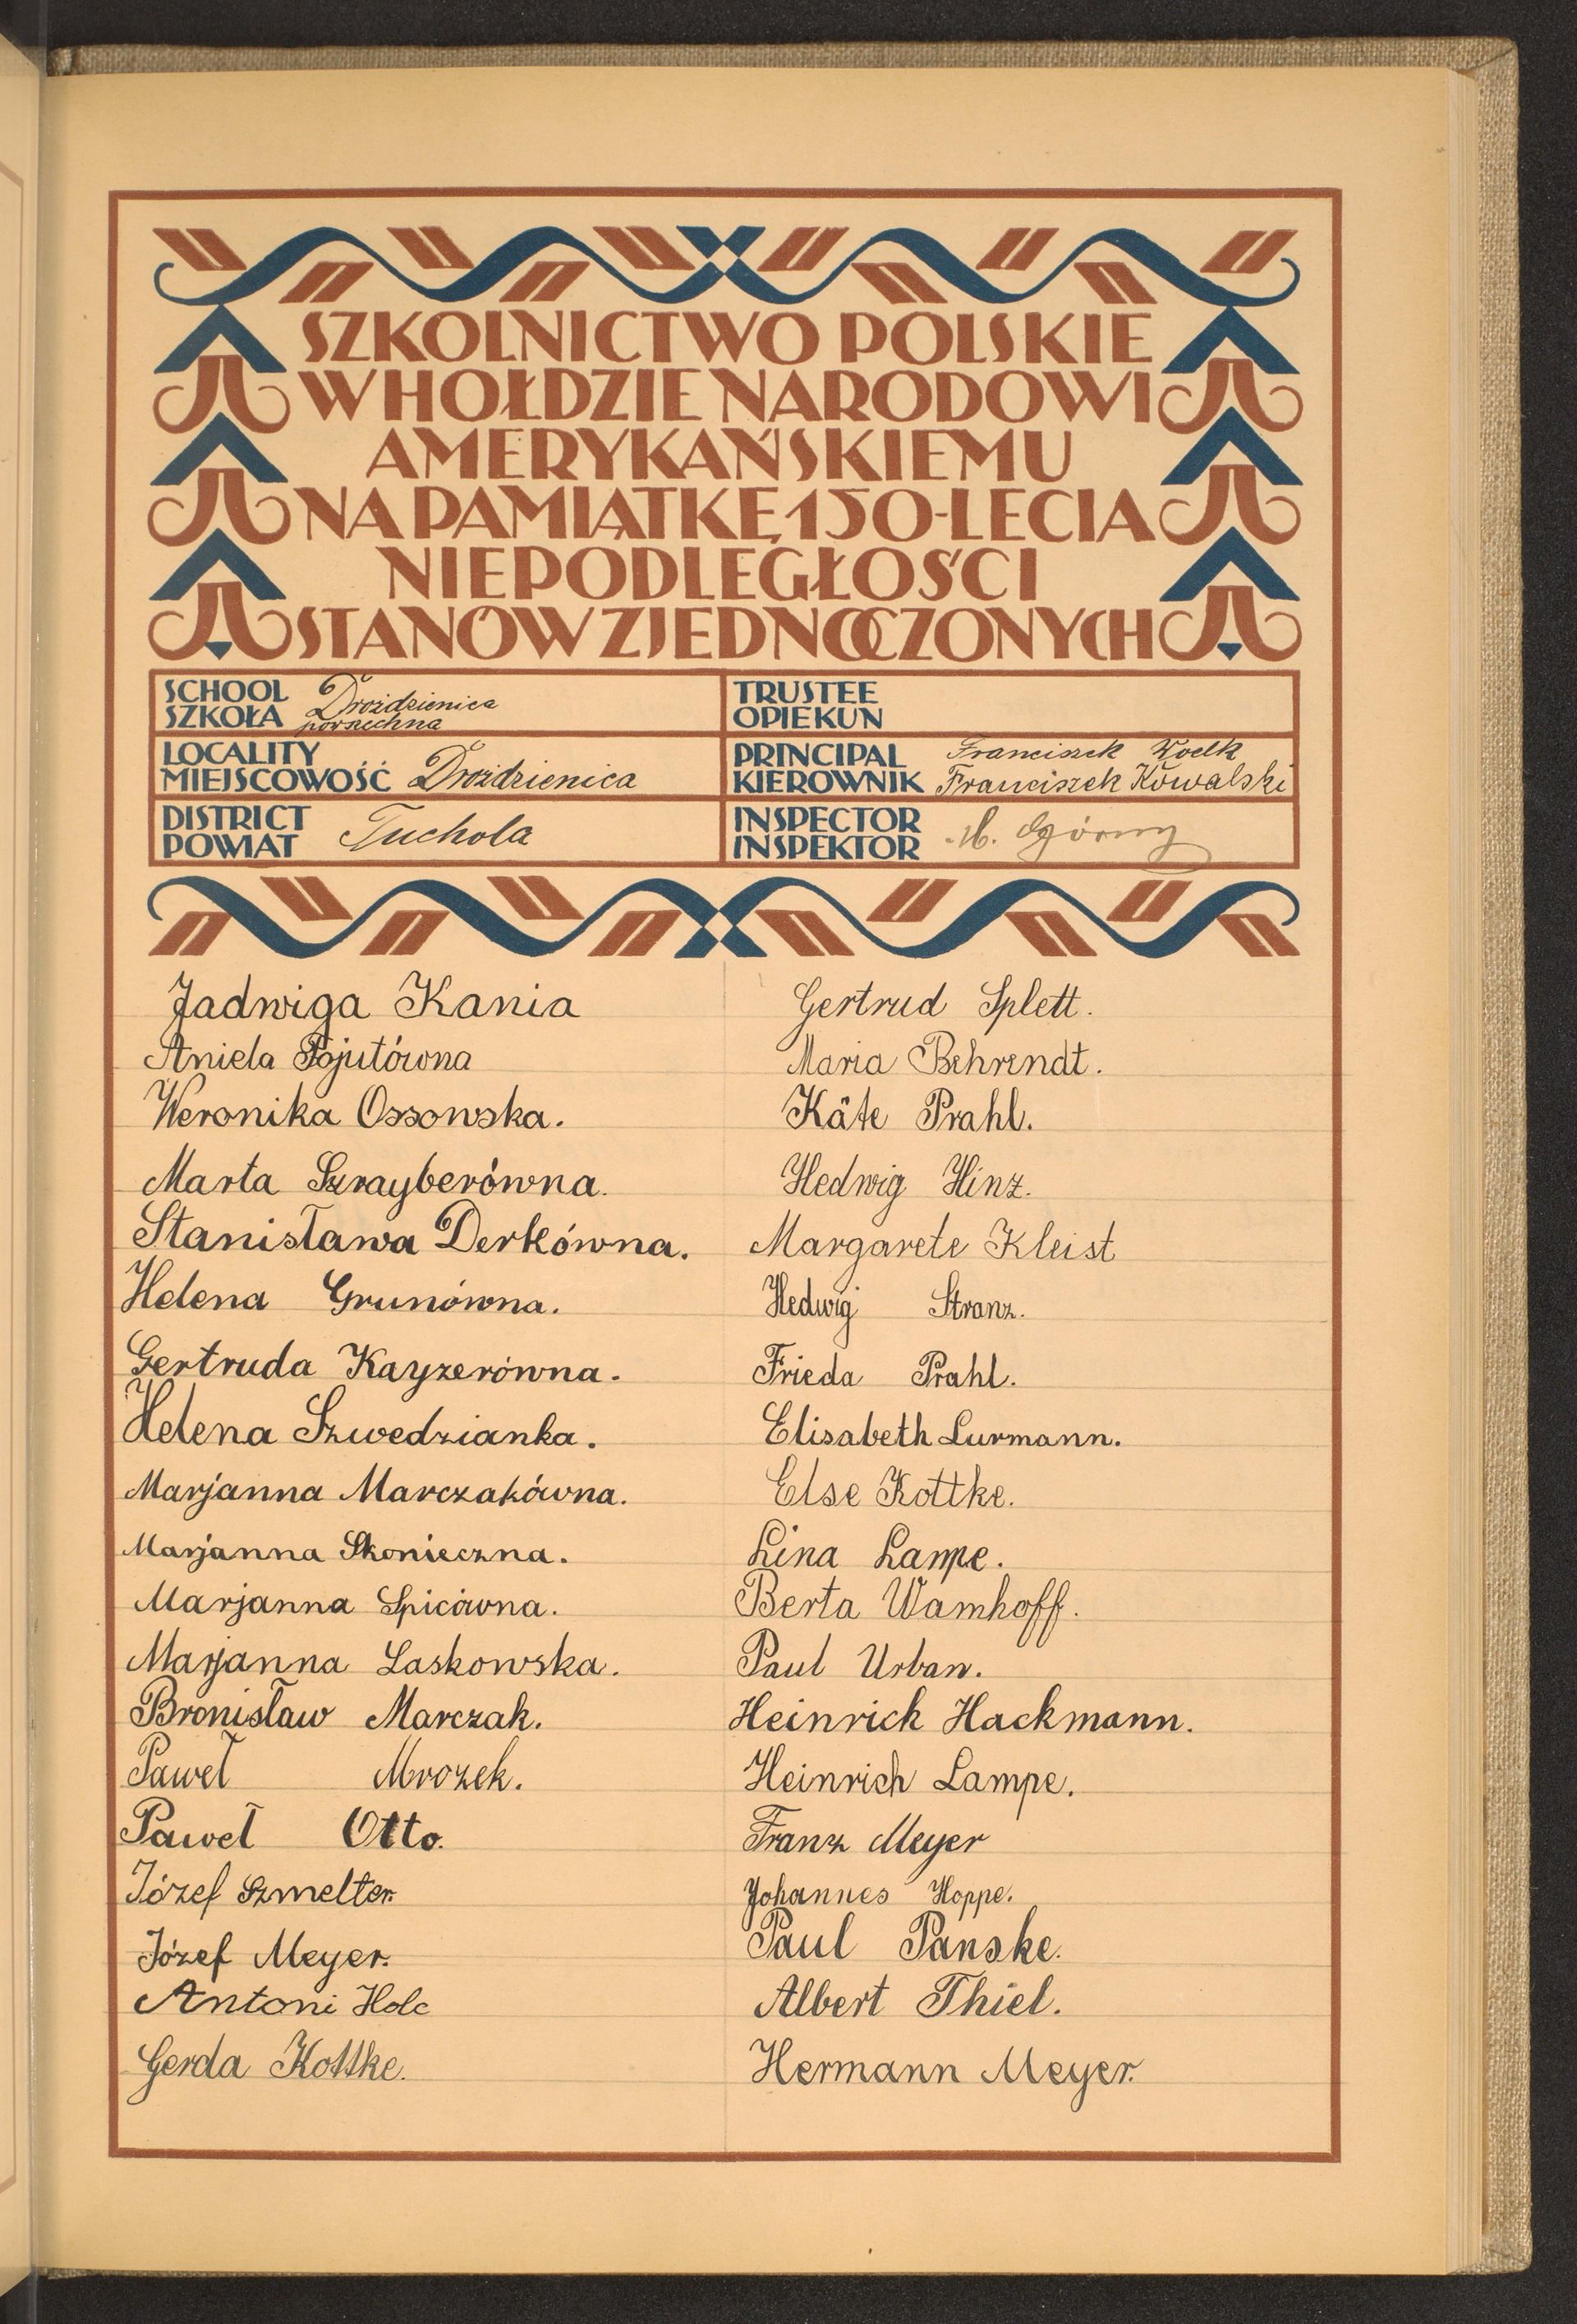 SZKOLNICTWO POLSKIE
W HOŁDZIE NARODOWI
AMERYKAŃSKIEMU
NA PAMIĄTKĘ 150-LECIA
NIEPODLEGŁOŚCI
STANÓW ZJEDNOCZONYCH
SCHOOL
SZKOŁA
Drożdzienica
powszechna
TRUSTEE
OPIEKUN
LOCALITY
MIEJSCOWOŚĆ Drożdzienica
PRINCIPAL Franciszek Woelk
KIEROWNIK Franciszek Kowalski
DISTRICT
POWIAT
Tuchola
INSPECTOR
INSPEKTOR
Ogórny
Jadwiga Kania
Aniela Pojutówna
Weronika Ossowska.
Marta Szrayberówna.
Stanisława Derkówna.
Helena Grunówna.
Gertruda Kayzerówna.
Helena Szwedzianka.
Marjanna Marczakówna.
Marjanna Skonieczna.
Marjanna Spicówna.
Marjanna Laskowska.
Bronisław Marczak.
Paweł Mrozek.
Paweł Otto.
Józef Szmelter.
Józef Meyer.
Antoni Holc
Gerda Kottke.
Gertrud Splett.
Maria Behrendt.
Käte Prahl.
Hedwig Hinz.
Margarete Kleist
Hedwig Stranz.
Frieda Prahl.
Elisabeth Lurmann.
Else Kottke.
Lina Lampe.
Berta Wamhoff.
Paul Urban.
Heinrich Hackmann.
Heinrich Lampe.
Franz Meyer
Johannes Hoppe.
Paul Panske.
Albert Thiel.
Hermann Meyer.